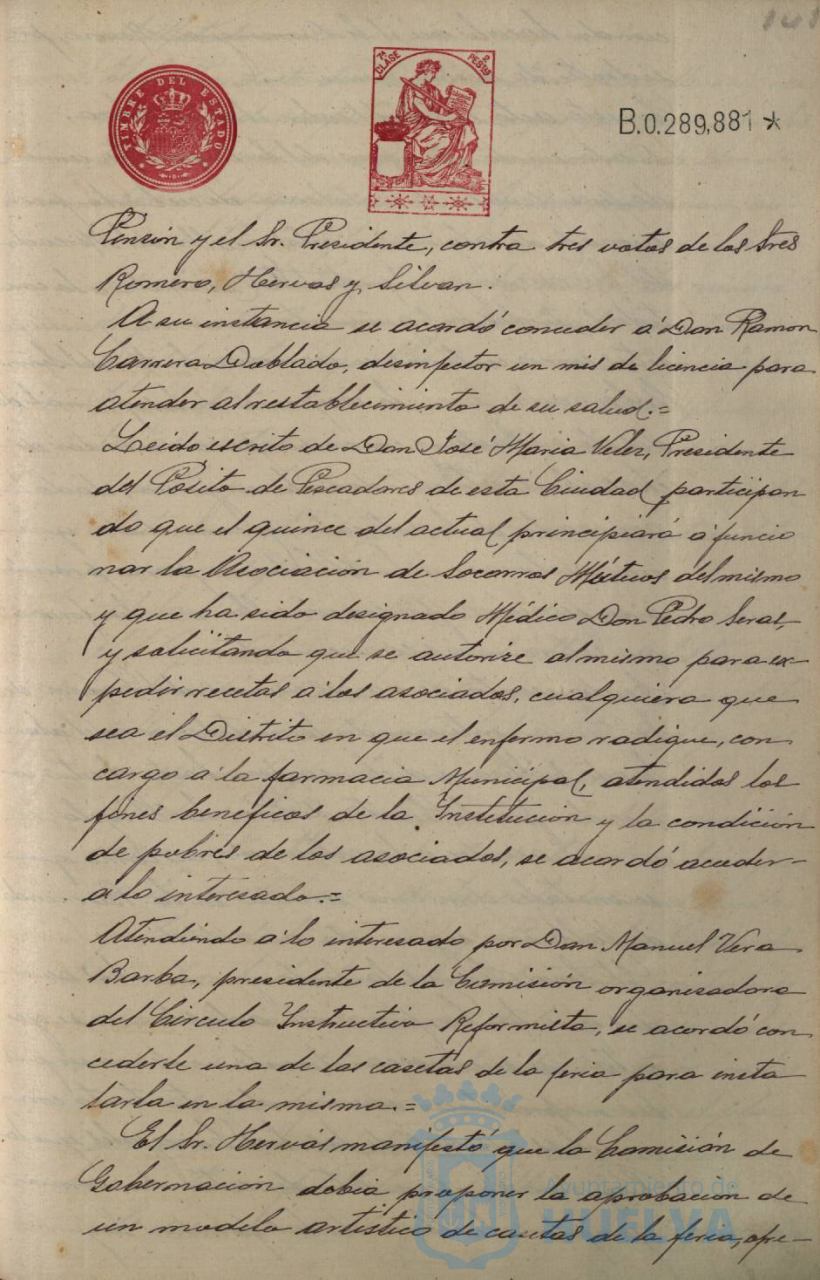 141
TIMBRE DEL ESTADO
7ª CLASE 2 PESETAS
B.0.289,881 *
Pinzón y el Sr. Presidente, contra tres votos de los Sres
Romero, Hervas y Silvan.
A su instancia se acordó conceder á Don Ramon
Carrera Doblado, desinfector un mes de licencia para
atender al restablecimiento de su salud.=
Leido escrito de Don José Maria Velez, Presidente
del Pósito de Pescadores de esta Ciudad participan
do que el quince del actual principiará á funcio
nar la Asociación de Socorros Mútuos del mismo
y que ha sido designado Médico Don Pedro Seras,
y solicitando que se autorize al mismo para ex-
pedir recetas á los asociados, cualquiera que
sea el Distrito en que el enfermo radique, con
cargo á la farmacia Municipal, atendidos los
fines beneficos de la Institución y la condición
de pobres de los asociados, se acordó acceder
a lo interesado.=
Atendiendo á lo interesado por Don Manuel Vera
Barba, presidente de la Comisión organizadora
del Circulo Instructivo Reformista, se acordó con
cederle una de las casetas de la feria para insta
larla en la misma.=
El Sr. Hervás manifestó que la Comisión de
Gobernación debia proponer la aprobacion de
un modelo artistico de casetas de la feria, ofre-
Ayuntamiento de
HUELVA